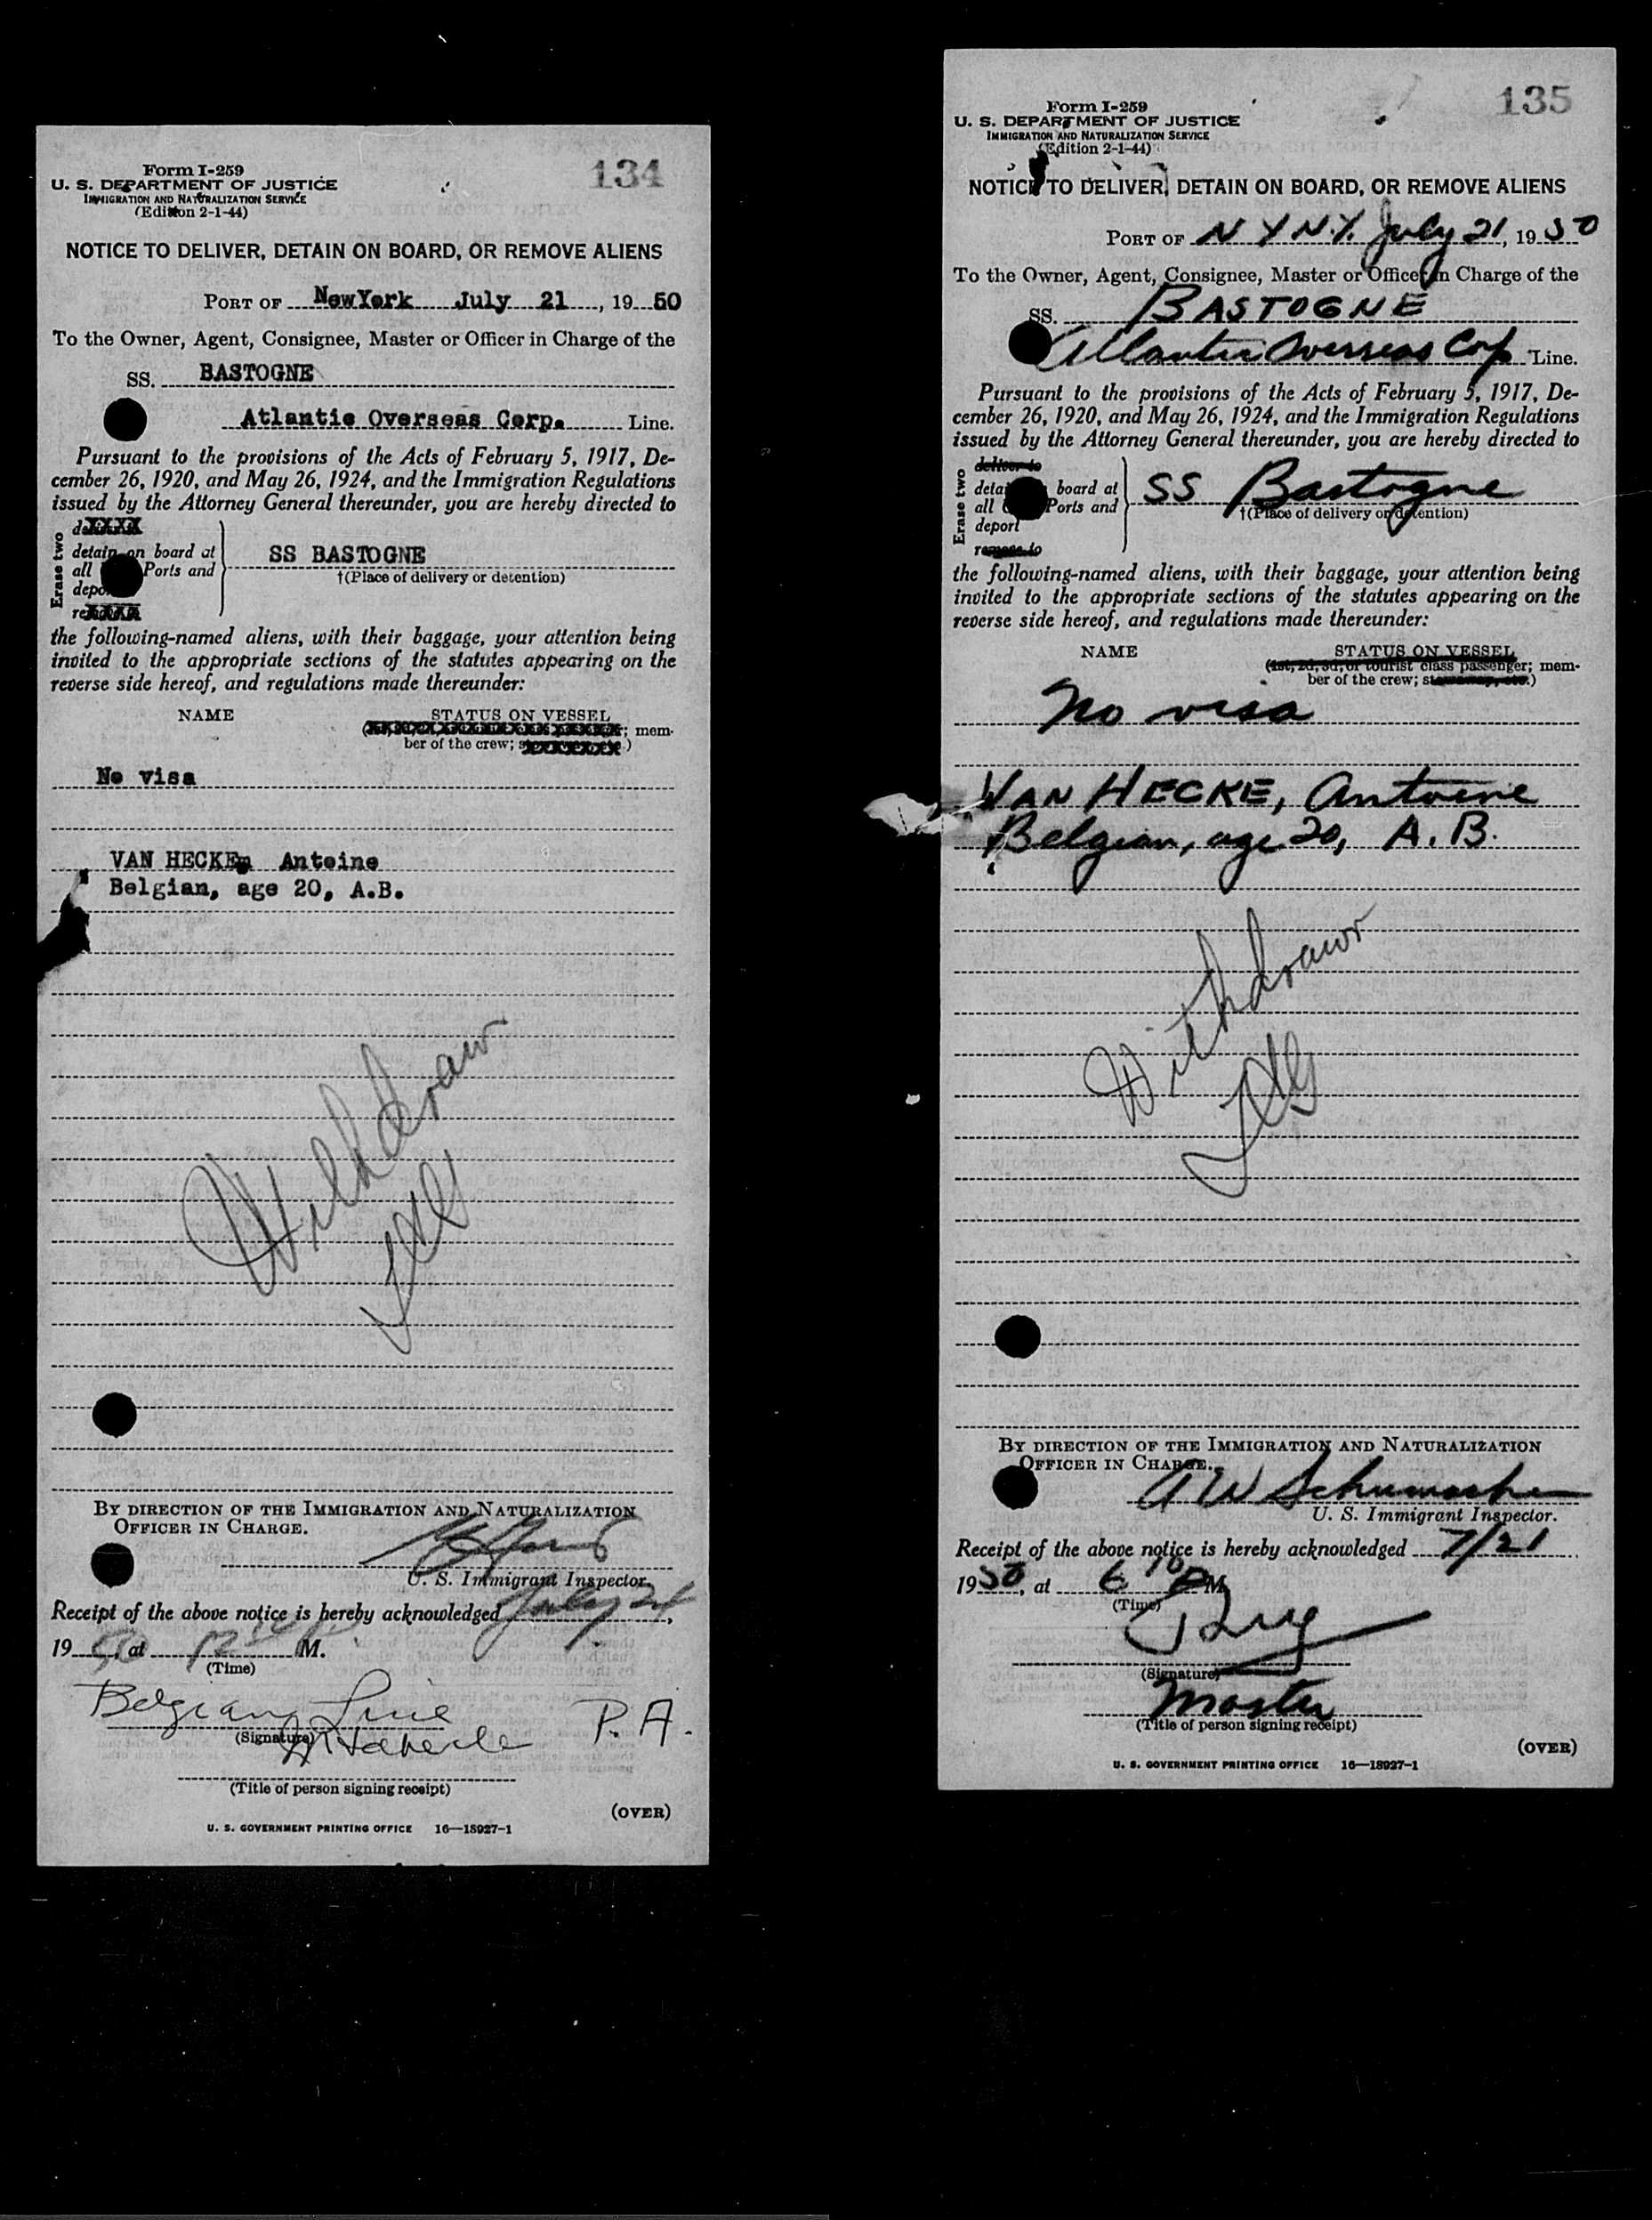 134
Form I-259
U. S. DEPARTMENT OF JUSTICE
IMMIGRATION AND NATURALIZATION SERVICE
(Edition 2-1-44)
NOTICE TO DELIVER, DETAIN ON BOARD, OR REMOVE ALIENS
PORT OF New York July 21, 19 50
To the Owner, Agent, Consignee, Master or Officer in Charge of the
SS. BASTOGNE
Atlantic Overseas Corp. Line.
Pursuant to the provisions of the Acts of February 5, 1917, De-
cember 26, 1920, and May 26, 1924, and the Immigration Regulations
issued by the Attorney General thereunder, you are hereby directed to
Erase two
detain on board at
all Ports and
SS BASTOGNE
†(Place of delivery or detention)
the following-named aliens, with their baggage, your attention being
invited to the appropriate sections of the statutes appearing on the
reverse side hereof, and regulations made thereunder:
NAME STATUS ON VESSEL
; mem-
ber of the crew;
No visa
VAN HECKE, Antoine
Belgian, age 20, A.B.
Withdrawn
BY DIRECTION OF THE IMMIGRATION AND NATURALIZATION
OFFICER IN CHARGE.
U. S. Immigrant Inspector.
Receipt of the above notice is hereby acknowledged July 21,
19 50 at 12 M.
(Time)
Belgian Line
(Signature) P. A.
(Title of person signing receipt)
(OVER)
U. S. GOVERNMENT PRINTING OFFICE 16—18927-1
135
Form I-259
U. S. DEPARTMENT OF JUSTICE
IMMIGRATION AND NATURALIZATION SERVICE
(Edition 2-1-44)
NOTICE TO DELIVER, DETAIN ON BOARD, OR REMOVE ALIENS
PORT OF N Y N.Y. July 21, 19 50
To the Owner, Agent, Consignee, Master or Officer in Charge of the
SS. BASTOGNE
Atlantic Overseas Corp Line.
Pursuant to the provisions of the Acts of February 5, 1917, De-
cember 26, 1920, and May 26, 1924, and the Immigration Regulations
issued by the Attorney General thereunder, you are hereby directed to
Erase two
deliver to
board at
all Ports and
deport
remove to
SS Bastogne
†(Place of delivery or detention)
the following-named aliens, with their baggage, your attention being
invited to the appropriate sections of the statutes appearing on the
reverse side hereof, and regulations made thereunder:
NAME STATUS ON VESSEL
(1st, 2d, 3d, or tourist class passenger; mem-
ber of the crew; stowaway, etc.)
No visa
VAN HECKE, Antoine
Belgian, age 20, A.B.
Withdrawn
BY DIRECTION OF THE IMMIGRATION AND NATURALIZATION
OFFICER IN CHARGE.
A W Schumacher
U. S. Immigrant Inspector.
Receipt of the above notice is hereby acknowledged 7/21
19 50, at 6 10 P M.
(Time)
(Signature)
Master
(Title of person signing receipt)
(OVER)
U. S. GOVERNMENT PRINTING OFFICE 16—18927-1